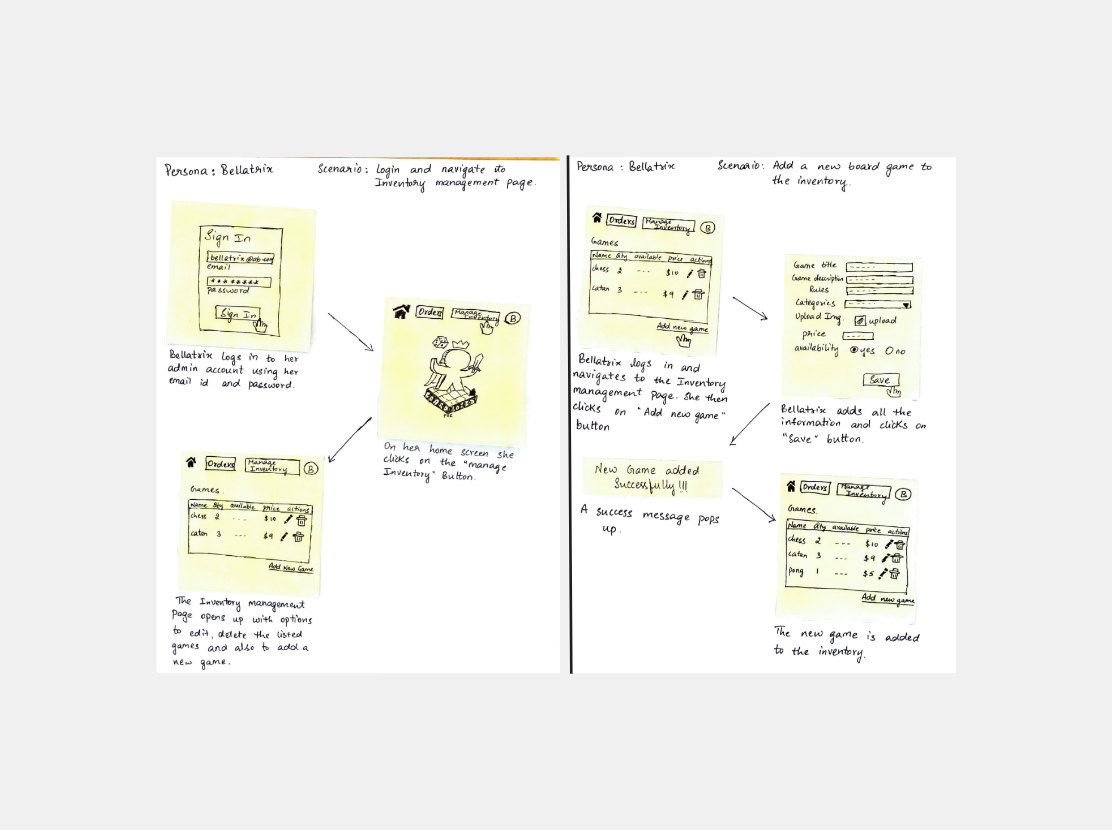 Persona: Bellatrix
Scenario: Login and navigate to
Inventory management page.
Sign In
bellatrix@ab.com
email
********
password
Sign In
Bellatrix logs in to her
admin account using her
email id and password.
Orders
Manage
Inventory
B
On her home screen she
clicks on the "manage
Inventory" Button.
Orders
Manage
Inventory
B
Games.
Name Qty available price actions
chess 2 --- $10
catan 3 --- $9
Add New Game
The Inventory management
Page opens up with options
to edit, delete the listed
games and also to add a
new game.
Persona: Bellatrix
Scenario: Add a new board game to
the inventory.
Orders
Manage
Inventory
B
Games
Name Qty available price actions
chess 2 --- $10
catan 3 --- $9
Add new game
Bellatrix logs in and
navigates to the Inventory
management page. She then
clicks on "Add new game"
button
Game title -----
Game description -----
Rules -----
Categories -----
Upload Img. upload
price ----
availability yes no
Save
Bellatrix adds all the
information and clicks on
"Save" button.
New Game added
Successfully!!!
A success message pops
up.
Orders
Manage
Inventory
B
Games.
Name Qty available price actions
chess 2 --- $10
catan 3 --- $9
pong 1 --- $5
Add new game
The new game is added
to the inventory.